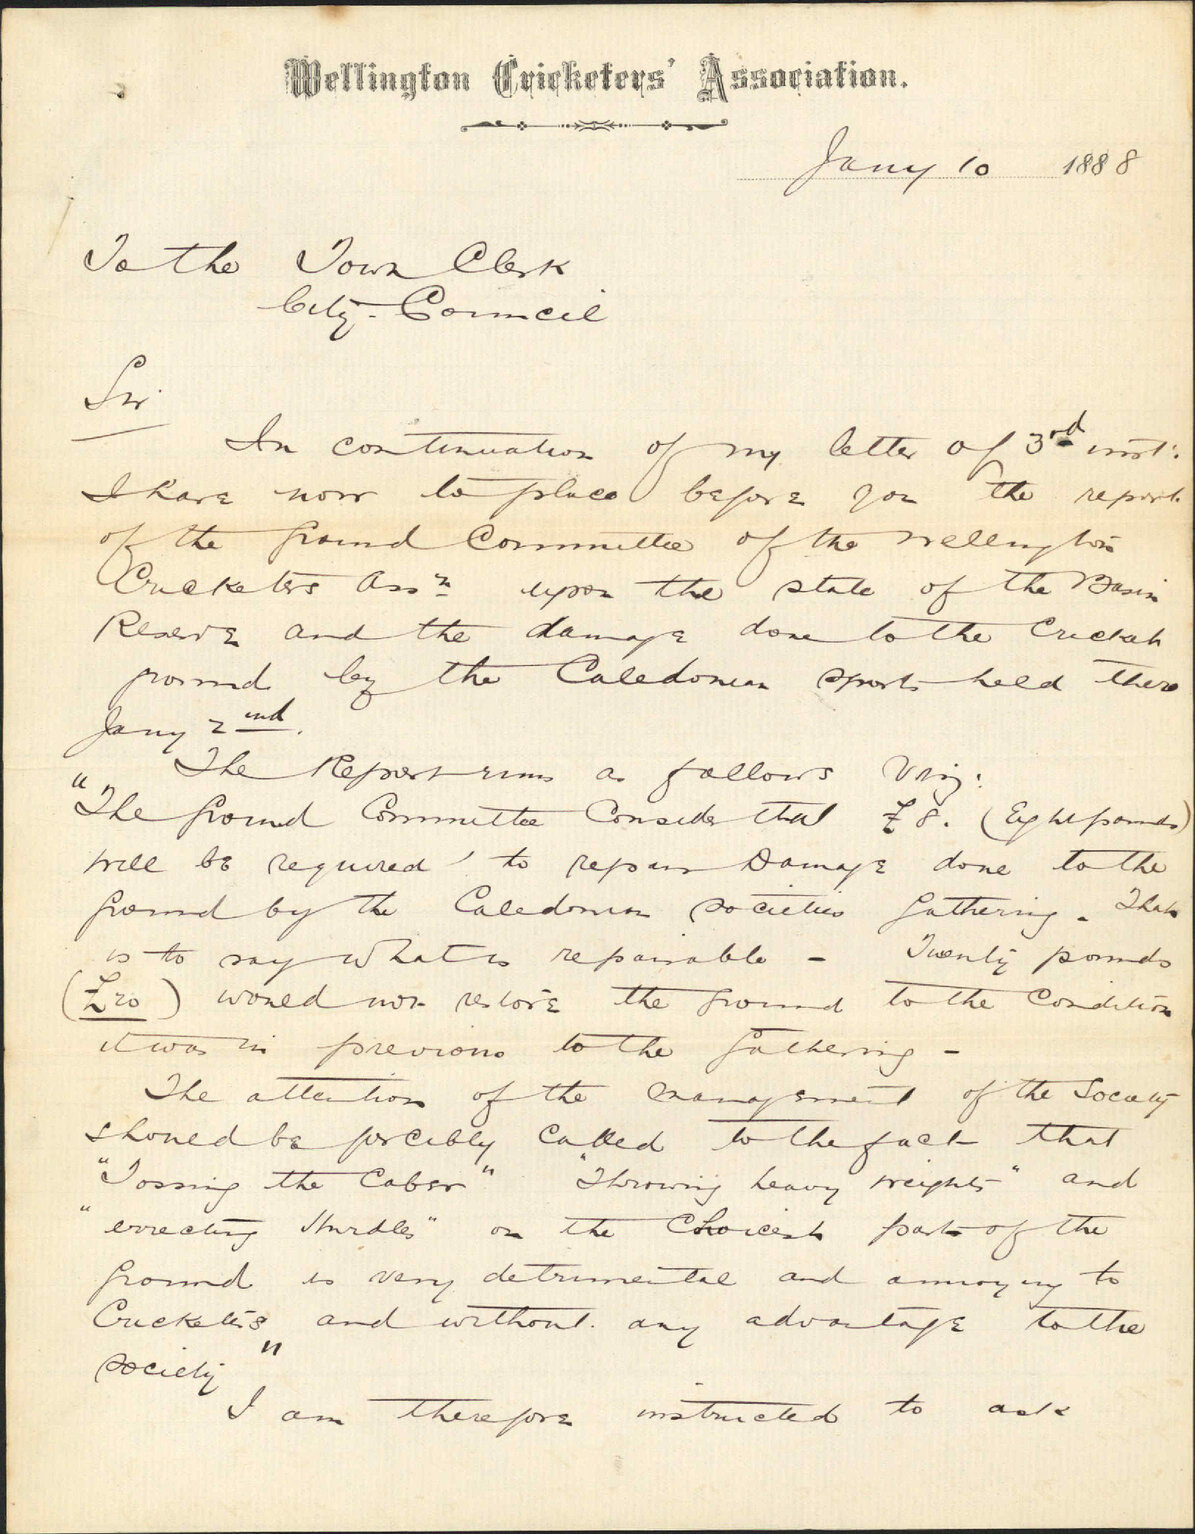 Wellington Cricketers' Association.
Jany 10 1888
To the Town Clerk
City Council
Sir
In continuation of my letter of 3rd inst:
I have now to place before you the report
of the Ground Committee of the Wellington
Cricketers Assn upon the state of the Basin
Reserve and the damage done to the Cricket
ground by the Caledonian sports held there
Jany 2nd.
The Report runs as follows Viz:
"The Ground Committee Consider that £8. (Eight pounds)
will be required to repair Damage done to the
ground by the Caledonian societies gathering. That
is to say what is repairable - Twenty pounds
(£20) would not restore the ground to the Condition
it was in previous to the gathering -
The attention of the management of the Society
should be forcibly called to the fact that
"Tossing the Caber" "Throwing heavy weights" and
"errecting Hurdles" on the Choicest part of the
ground is very detrimental and annoying to
Cricketers and without any advantage to the
society"
I am therefore instructed to ask